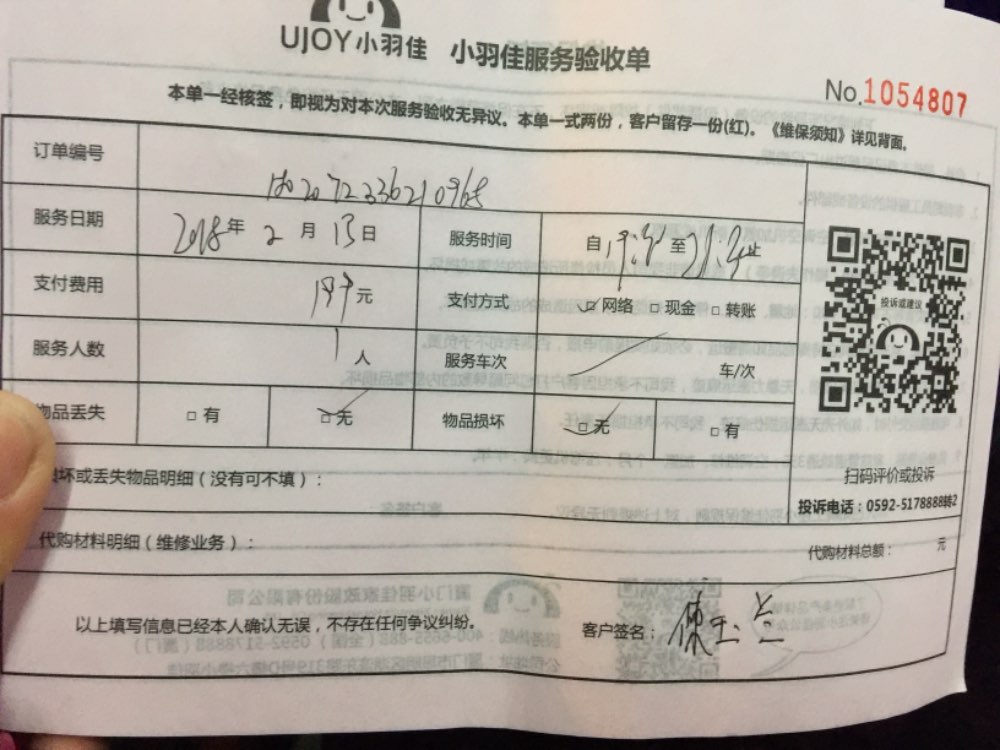 UJOY小羽佳 小羽佳服务验收单
No.1054807
本单一经核签，即视为对本次服务验收无异议。本单一式两份，客户留存一份(红)。《维保须知》详见背面。
订单编号
服务日期 2018年 2 月 13日 服务时间 自 至 止
支付费用 元 支付方式 □网络 □现金 □转账
投诉或建议
服务人数 1 人 服务车次 车/次
物品丢失 □有 □无 物品损坏 □无 □有
坏或丢失物品明细（没有可不填）：
扫码评价或投诉
投诉电话：0592-5178888转2
代购材料明细（维修业务）：
代购材料总额： 元
以上填写信息已经本人确认无误，不存在任何争议纠纷。
客户签名：